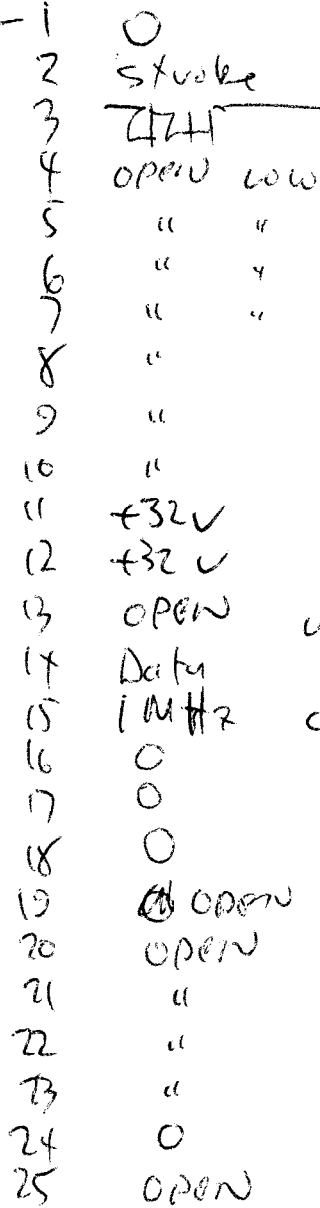 - 1 0
2 strobe
3
4 OPEN LOW
5 " "
6 " "
7 " "
8 "
9 "
10 "
11 +32V
12 +32V
13 OPEN
14 Data
15 1 MHz
16 0
17 0
18 0
19 OPEN
20 OPEN
21 "
22 "
23 "
24 0
25 OPEN